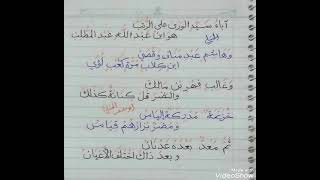 آباء سيد الورى على الرتب
هو ابن عبد الله عبد المطلب
وهاشم عبد مناف وقصي
ابن كلاب مرة كعب لؤي
وغالب فهر بن مالك
والنضر قل كنانة كذلك
خزيمة مدركة الياس
ومضر نزارهم قياس
ثم معد بعده عدنان
وبعد ذاك اختلف الأعيان
Made with
VideoShow